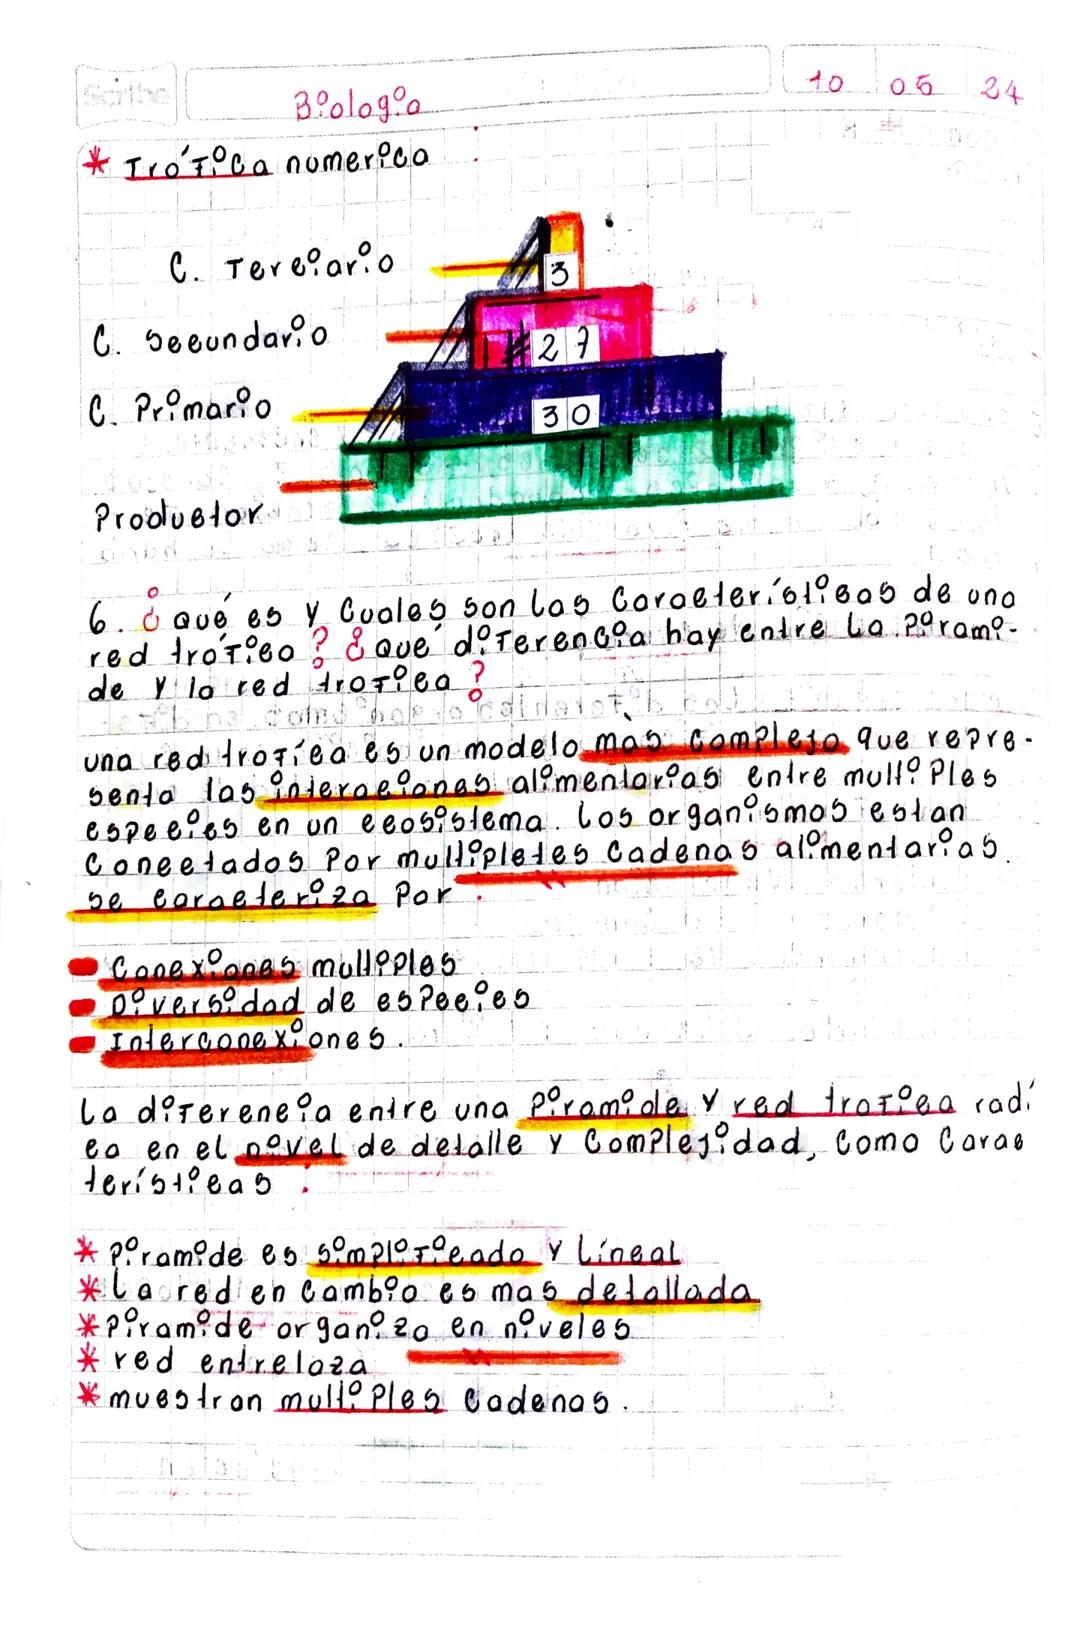 Scribe
Biología
10 05 24
* Trófica numerica
C. Terciario
3
C. Secundario
27
C. Primario
30
Productor
6. ¿qué es y cuales son las características de una
red trófica? ¿qué diferencia hay entre la pirami-
de y la red trofica?
una red trofíca es un modelo mas complejo que repre-
senta las interaciones alimentarias entre multiples
especies en un ecosistema. los organismos estan
conectados por multipletes cadenas alimentarias.
se caracteriza por:
Conexiones multiples
Diversidad de especies
Interconexiones.
la diferencia entre una piramide y red trofica radi
ca en el nivel de detalle y complejidad, como carac
terísticas:
* piramide es simplificado y líneal
* la red en cambio es mas detallada
* piramide organiza en niveles
* red entrelaza
* muestran multiples cadenas.